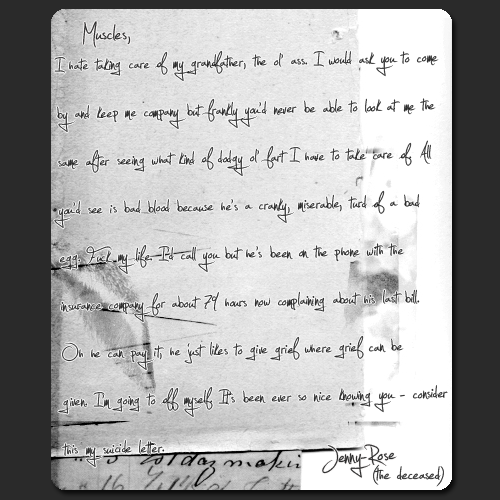 Muscles,
I hate taking care of my grandfather, the ol' ass. I would ask you to come
by and keep me company but frankly you'd never be able to look at me the
same after seeing what kind of dodgy ol' fart I have to take care of. All
you'd see is bad blood because he's a cranky, miserable, turd of a bad
egg. Fuck my life. I'd call you but he's been on the phone with the
insurance company for about 74 hours now complaining about his last bill.
Oh he can pay it, he just likes to give grief where grief can be
given. I'm going to off myself. It's been ever so nice knowing you - consider
this my suicide letter.
Jenny-Rose
(the deceased)
makin